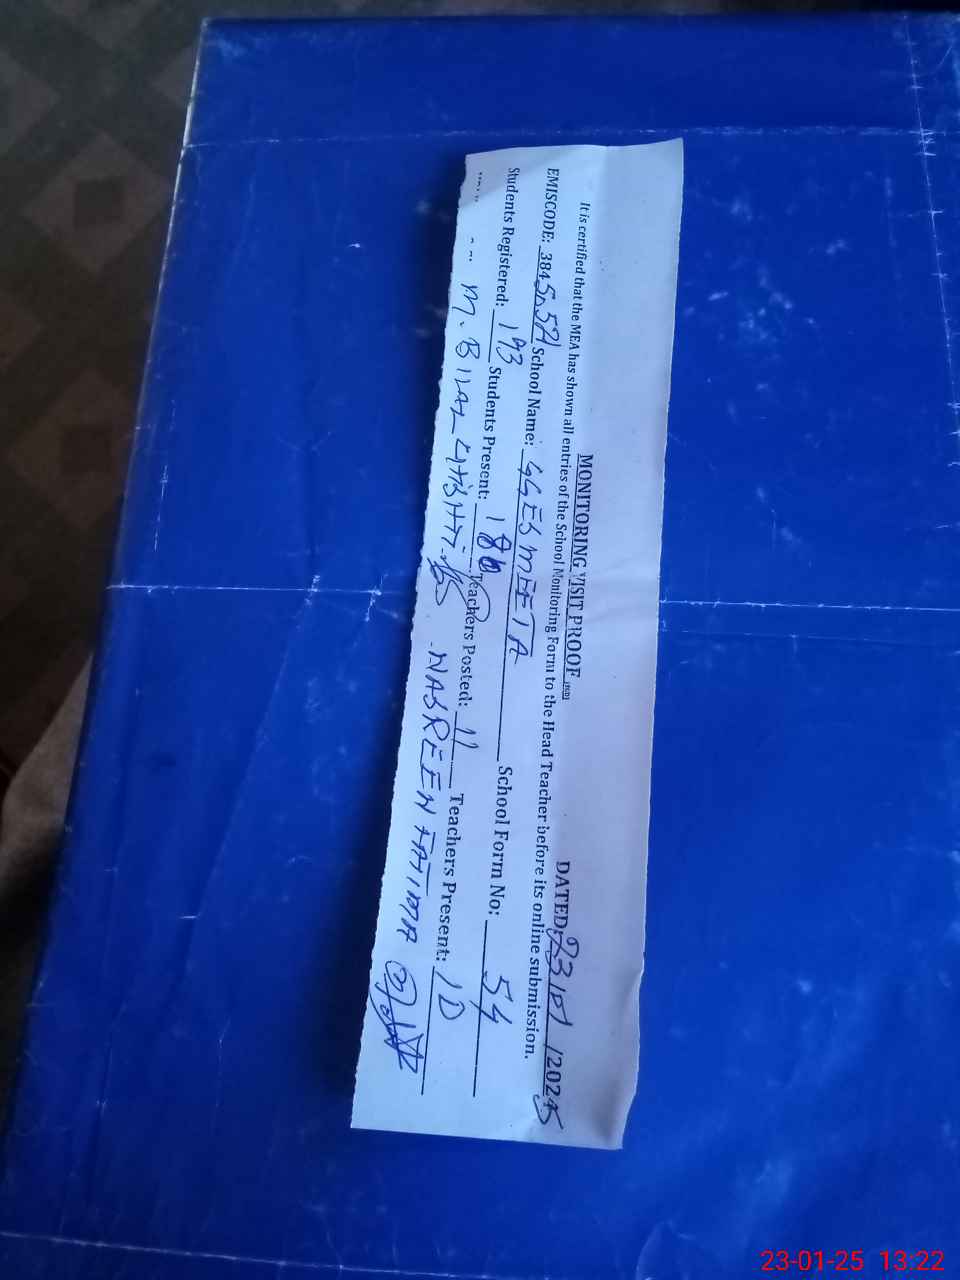 MONITORING VISIT PROOF DATED: 23/01/2025
It is certified that the MEA has shown all entries of the School Monitoring Form to the Head Teacher before its online submission.
EMISCODE: School Name: GGES MEETA School Form No: 54
Students Registered: 193 Students Present: 180 Teachers Posted: 11 Teachers Present: 10
M. BILAL CHISHTI NASREEN FATIMA
23-01-25 13:22